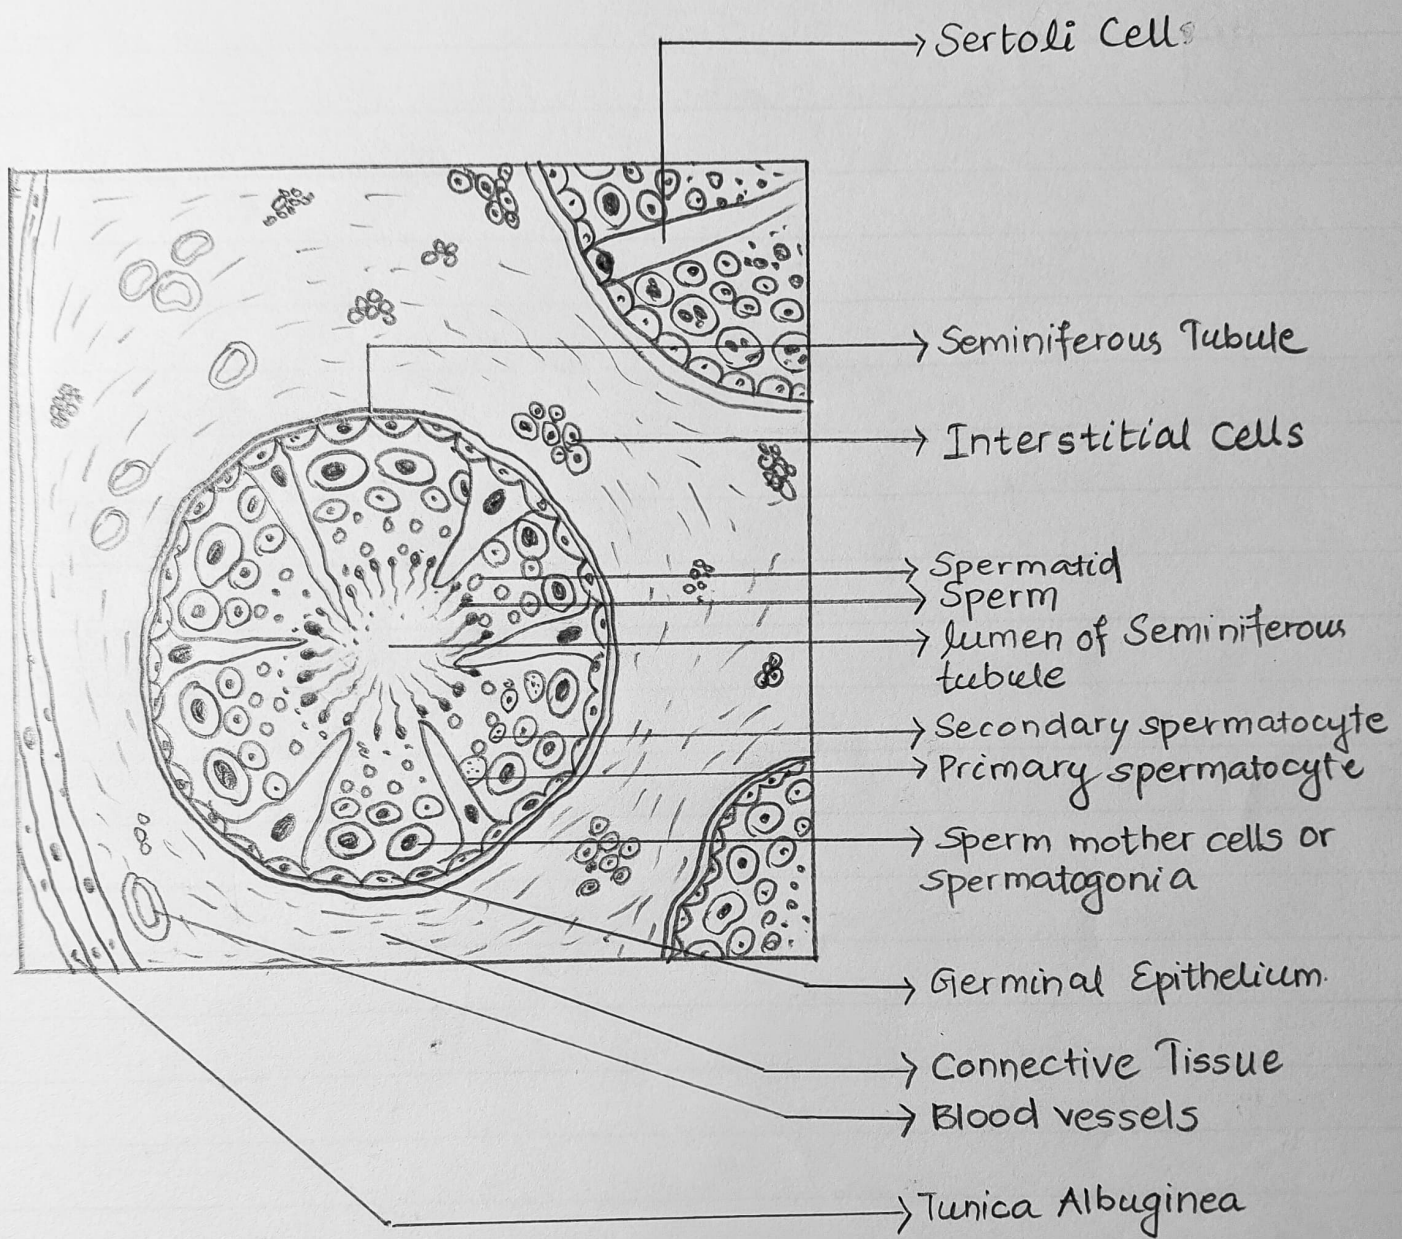 Sertoli Cells
Seminiferous Tubule
Interstitial cells
Spermatid
Sperm
lumen of Seminiferous
tubule
Secondary spermatocyte
Primary spermatocyte
Sperm mother cells or
spermatogonia
Germinal Epithelium.
Connective Tissue
Blood vessels
Tunica Albuginea